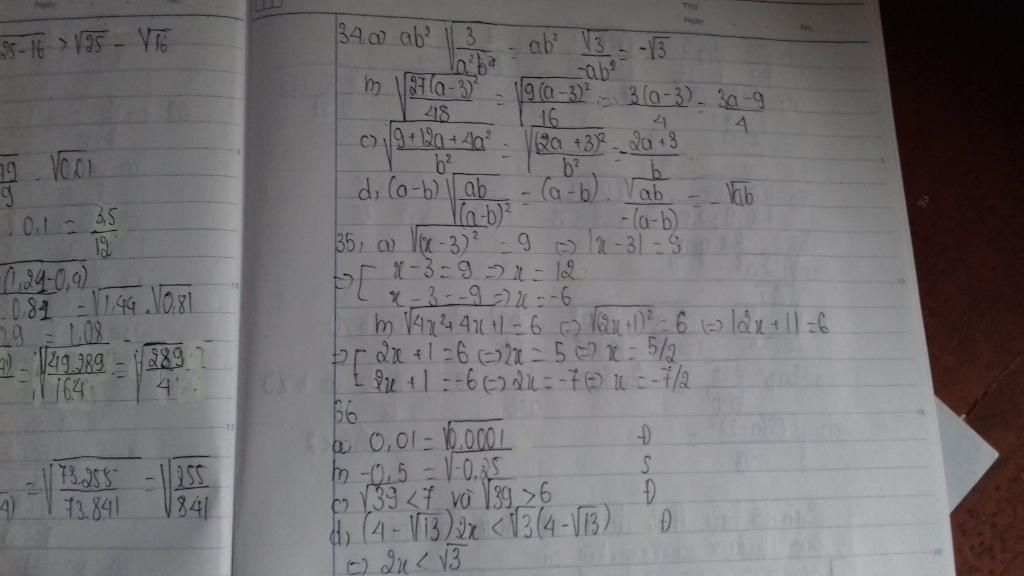 25-16 > √25 - √16
. √0,01
. 0,1 = 35/12
= √1,44 . √0,81
= 1,08
= √(49.289/164) = √(289/4)
= √(73.255/73.841) = √(255/841)
Thứ
Ngày
No.
34. a) ab² √(3/(a²b⁴)) = ab² √3/(-ab²) = -√3
b) √(27(a-3)²/48) = √(9(a-3)²/16) = 3(a-3)/4 = (3a-9)/4
c) √((9+12a+4a²)/b²) = √((2a+3)²/b²) = (2a+3)/b
d, (a-b) √(ab/(a-b)²) = (a-b) . √ab/(-(a-b)) = -√ab
35, a) √(x-3)² = 9 ⇔ |x-3| = 9
⇒ [ x - 3 = 9 ⇒ x = 12
x - 3 = -9 ⇒ x = -6
b) √(4x²+4x+1) = 6 ⇔ √(2x+1)² = 6 ⇔ |2x+1| = 6
⇒ [ 2x + 1 = 6 ⇔ 2x = 5 ⇔ x = 5/2
2x + 1 = -6 ⇔ 2x = -7 ⇔ x = -7/2
36
a, 0,01 = √0,0001 Đ
b) -0,5 = √-0,25 S
c) √39 < 7 và √39 > 6 Đ
d, (4 - √13) 2x < √3 (4 - √13) Đ
⇔ 2x < √3